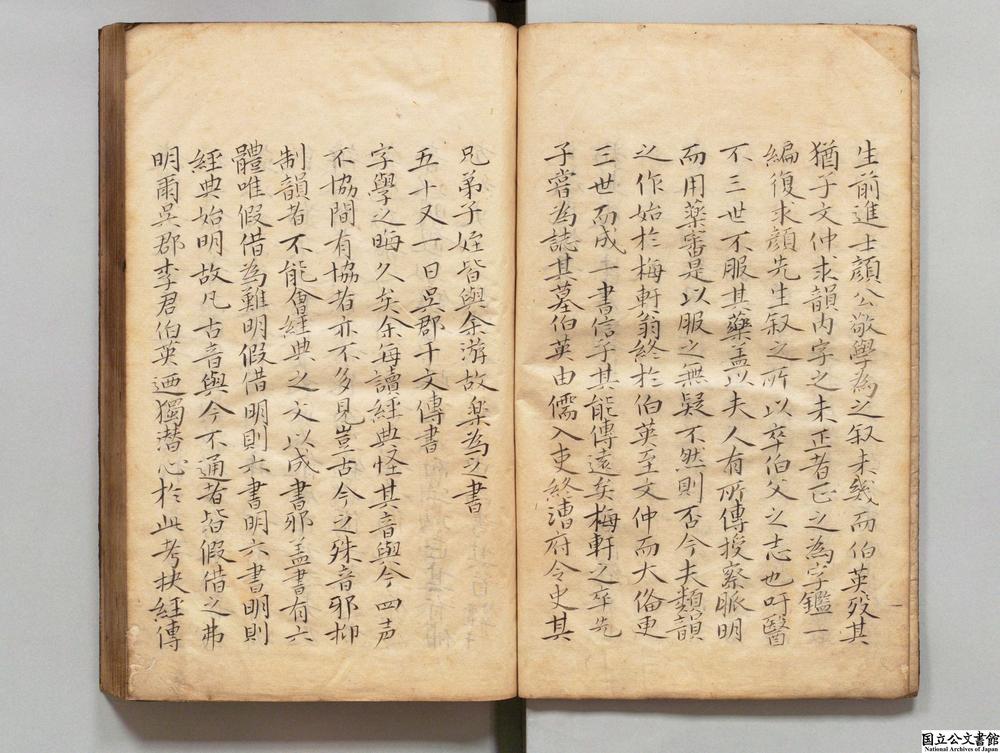 生前進士顔公敬學為之叙未幾而伯英歿其
猶子文仲求韻內字之未正者正之為字鑑一
編復求顔先生叙之所以卒伯父之志也吁醫
不三世不服其藥盖以夫人有所傳授察脈明
而用藥審是以服之無疑不然則否今夫類韻
之作始於梅軒翁終於伯英至文仲而大俻更
三世而成一書信乎其能傳遠矣梅軒之卒先
子嘗為誌其墓伯英由儒入吏終漕府令史其
兄弟子姪皆與余游故楽為之書
五十又一日吴郡干文傳書
字學之晦久矣余每讀經典怪其音與今四声
不協間有協者亦不多見豈古今之殊音邪抑
制韻者不能會經典之文以成書邪盖書有六
體唯假借為難明假借明則六書明六書明則
經典始明故凡古音與今不通者皆假借之弗
明爾吴郡李君伯英廼獨潜心於此考抉經傳
国立公文書館
National Archives of Japan